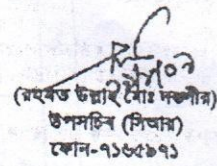 (রহমত উল্লাহ মোঃ দস্তগীর)
উপসচিব (বিআর)
ফোন-৭১৬৫৯৭১